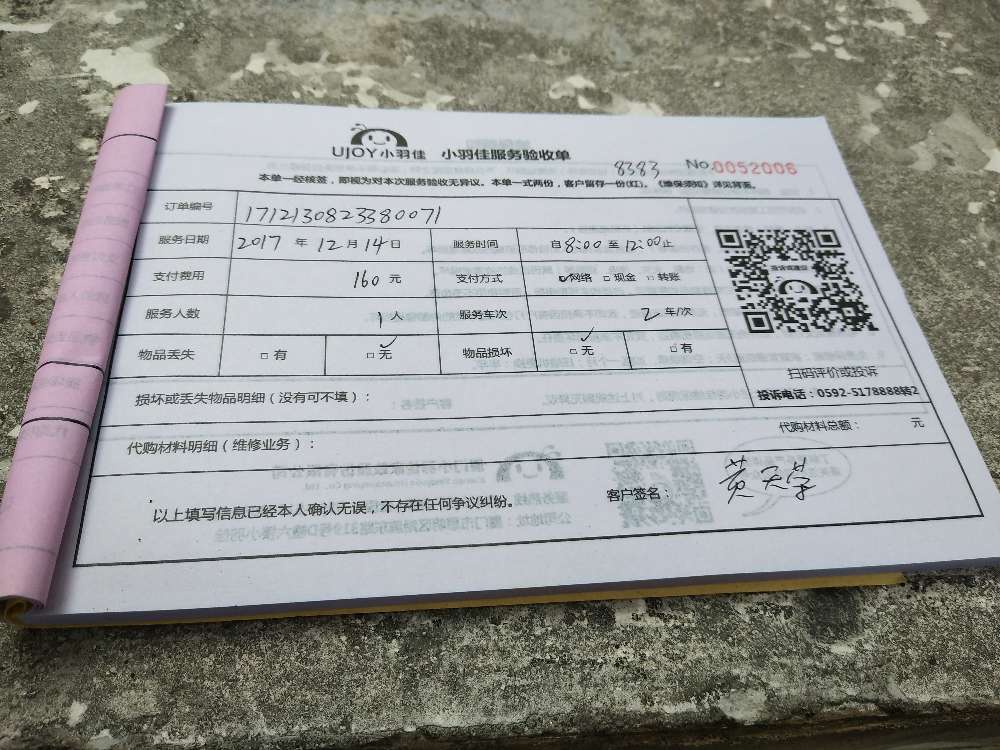 UJOY小羽佳 小羽佳服务验收单
8383 No.0052006
本单一经核签，即视为对本次服务验收无异议。本单一式两份，客户留存一份(红)。《维保须知》详见背面。
订单编号 1712130823380071
服务日期 2017 年 12 月 14 日 服务时间 自 8:00 至 12:00 止
支付费用 160 元 支付方式 ☑网络 □现金 □转账
服务人数 1 人 服务车次 2 车/次
物品丢失 □有 ☑无 物品损坏 ☑无 □有
扫码评价或投诉
投诉电话：0592-5178888转2
损坏或丢失物品明细（没有可不填）：
代购材料明细（维修业务）： 代购材料总额： 元
以上填写信息已经本人确认无误，不存在任何争议纠纷。 客户签名： 黄天学